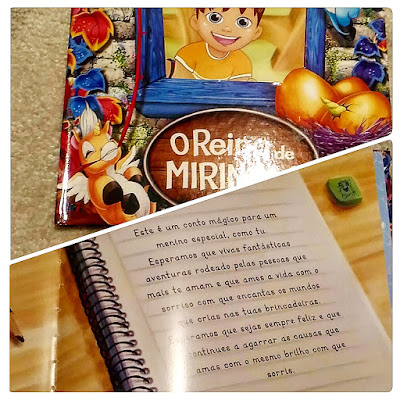 O Reino de
MIRIN
Este é um conto mágico para um
menino especial, como tu
Esperamos que vivas fantásticas
aventuras rodeado pelas pessoas que
mais te amam e que ames a vida com o
sorriso com que encantas os mundos
que crias nas tuas brincadeiras.
Esperamos que sejas sempre feliz e que
continues a agarrar as causas que
amas com o mesmo brilho com que
sorris.